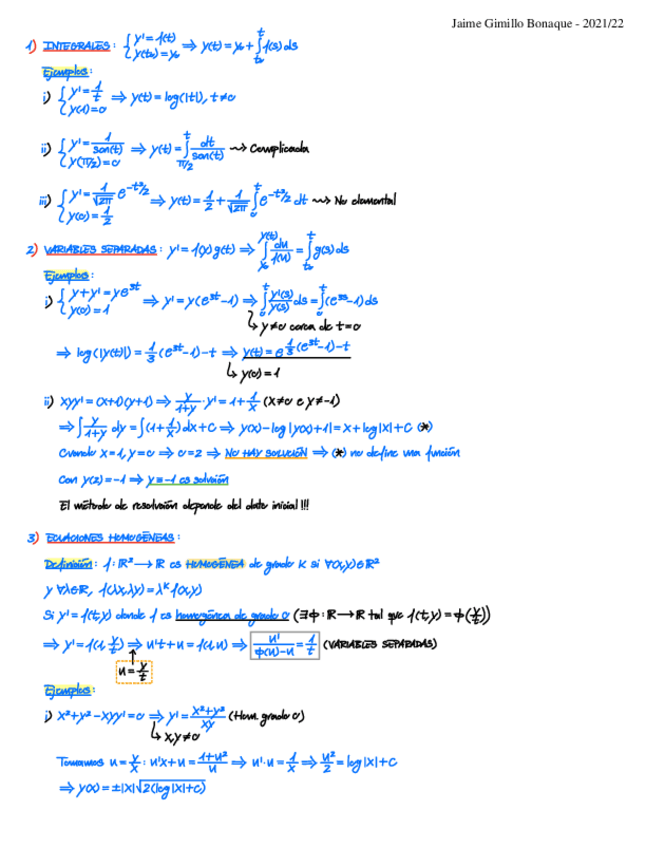 Jaime Gimillo Bonaque - 2021/22
1) INTEGRALES: { y' = f(t) y(t₀) = y₀ ⇒ y(t) = y₀ + ∫_{t₀}^{t} f(s) ds
Ejemplos:
i) { y' = 1/t y(1) = 0 ⇒ y(t) = log(|t|), t ≠ 0
ii) { y' = 1/sen(t) y(π/2) = 0 ⇒ y(t) = ∫_{π/2}^{t} dt/sen(t) ⇝ Complicada
iii) { y' = 1/√2π e^{-t²/2} y(0) = 1/2 ⇒ y(t) = 1/2 + 1/√2π ∫_{0}^{t} e^{-t²/2} dt ⇝ No elemental
2) VARIABLES SEPARADAS: y' = f(y) g(t) ⇒ ∫_{y₀}^{y(t)} du/f(u) = ∫_{t₀}^{t} g(s) ds
Ejemplos:
i) { y + y' = y e^{3t} y(0) = 1 ⇒ y' = y(e^{3t} - 1) ⇒ ∫_{0}^{t} y'(s)/y(s) ds = ∫_{0}^{t} (e^{3s} - 1) ds
↳ y ≠ 0 cerca de t = 0
⇒ log(|y(t)|) = 1/3 (e^{3t} - 1) - t ⇒ y(t) = e^{1/3 (e^{3t} - 1) - t}
↳ y(0) = 1
ii) xyy' = (x+1)(y+1) ⇒ y/1+y · y' = 1 + 1/x (x ≠ 0 e y ≠ -1)
⇒ ∫ y/1+y dy = ∫ (1 + 1/x) dx + C ⇒ y(x) - log|y(x)+1| = x + log|x| + C (*)
Cuando x = 1, y = 0 ⇒ 0 = 2 ⇒ NO HAY SOLUCIÓN ⇒ (*) no define una función
Con y(2) = -1 ⇒ y ≡ -1 es solución
El método de resolución depende del dato inicial !!!
3) ECUACIONES HOMOGÉNEAS:
Definición: f: ℝ² → ℝ es HOMOGÉNEA de grado K si ∀(x,y) ∈ ℝ²
y ∀λ ∈ ℝ, f(λx, λy) = λ^K f(x,y)
Si y' = f(t,y) donde f es homogénea de grado 0 (∃ϕ: ℝ → ℝ tal que f(t,y) = ϕ(y/t))
⇒ y' = f(1, y/t) ⇒ u't + u = f(1,u) ⇒ u'/ϕ(u)-u = 1/t (VARIABLES SEPARADAS)
u = y/t
Ejemplos:
i) x² + y² - xyy' = 0 ⇒ y' = x²+y²/xy (Hom. grado 0)
↳ x,y ≠ 0
Tomamos u = y/x : u'x + u = 1+u²/u ⇒ u'·u = 1/x ⇒ u²/2 = log|x| + C
⇒ y(x) = ±|x|√2(log|x|+C)